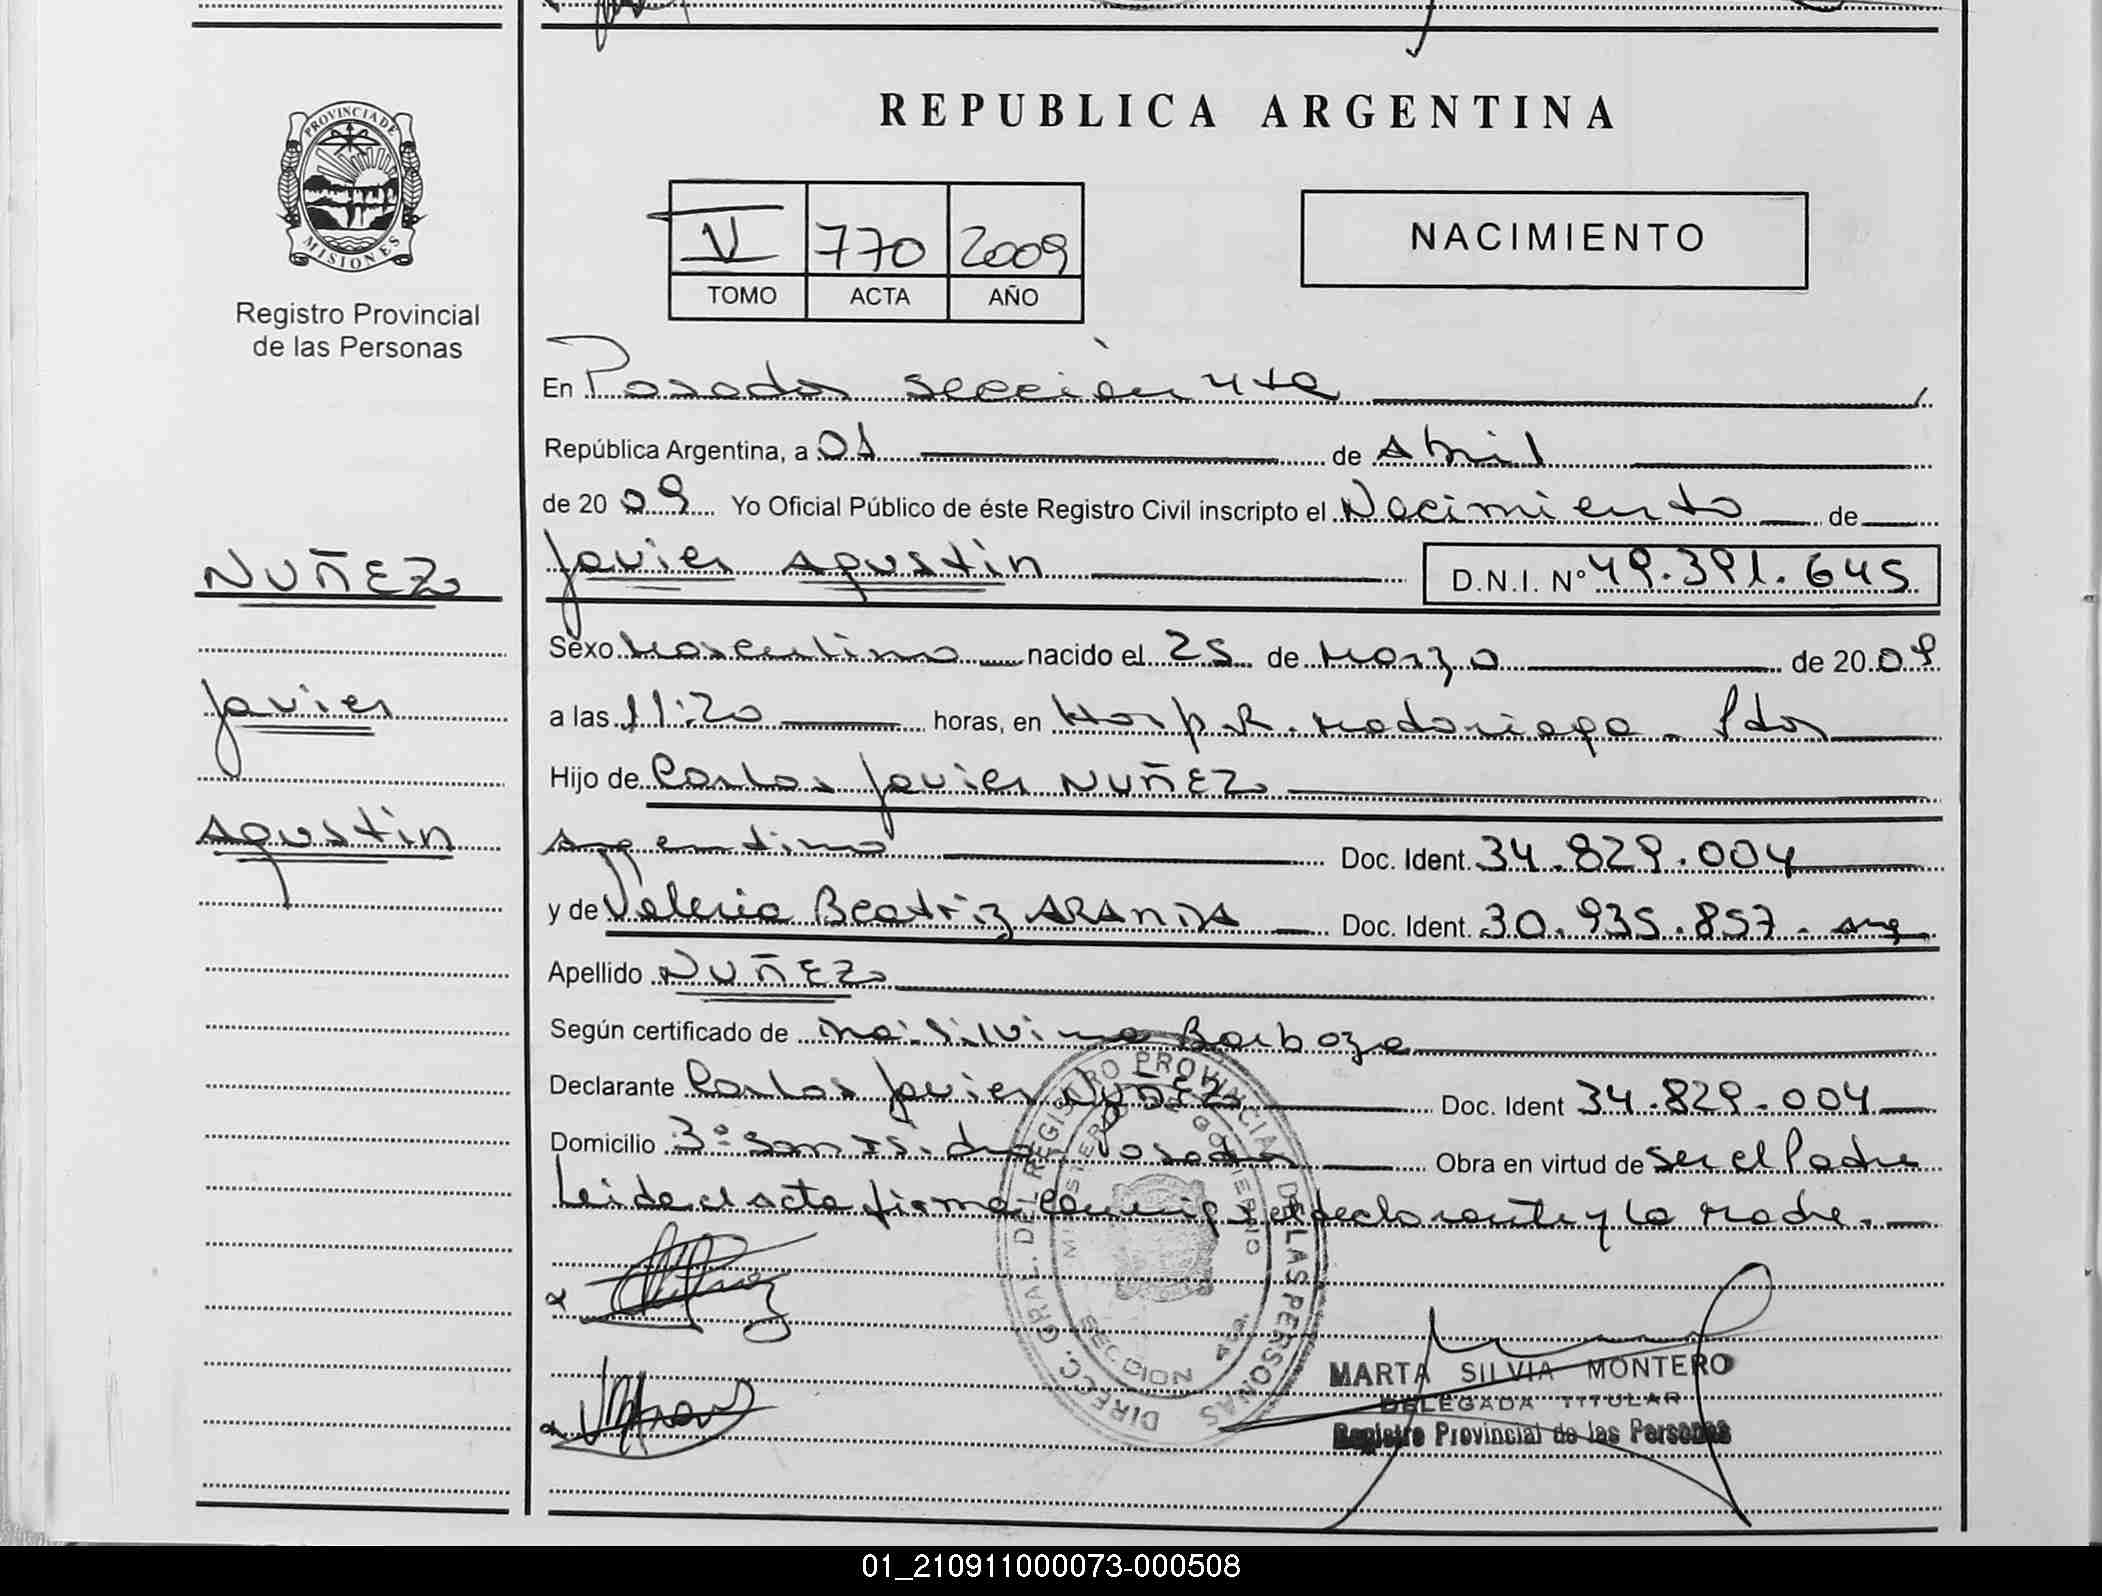 REPUBLICA ARGENTINA
PROVINCIA DE MISIONES
Registro Provincial
de las Personas
V 770 2009
TOMO ACTA AÑO
NACIMIENTO
En Posadas sección 4ta
República Argentina, a 01 de Abril
de 2009 Yo Oficial Público de éste Registro Civil inscripto el Nacimiento de
Javier Agustin D.N.I. Nº 49.391.645
NUÑEZ
Javier
Agustin
Sexo Masculino nacido el 25 de Marzo de 2009
a las 11:20 horas, en Hosp. R. Madariaga - Pdas
Hijo de Carlos Javier NUÑEZ
Argentino Doc. Ident. 34.829.004
y de Valeria Beatriz ARANDA Doc. Ident. 30.935.857 - arg
Apellido NUÑEZ
Según certificado de Ma. Silvina Barboza
Declarante Carlos Javier NUÑEZ Doc. Ident 34.829.004
Domicilio Posadas Obra en virtud de ser el Padre
Leida el acta firma conmigo el declarante y la Madre.
DIRECC. GRAL. DEL REGISTRO PROVINCIAL DE LAS PERSONAS
MINISTERIO DE GOBIERNO
SECCION 4ta.
MARTA SILVIA MONTERO
DELEGADA TITULAR
Registro Provincial de las Personas
01_210911000073-000508